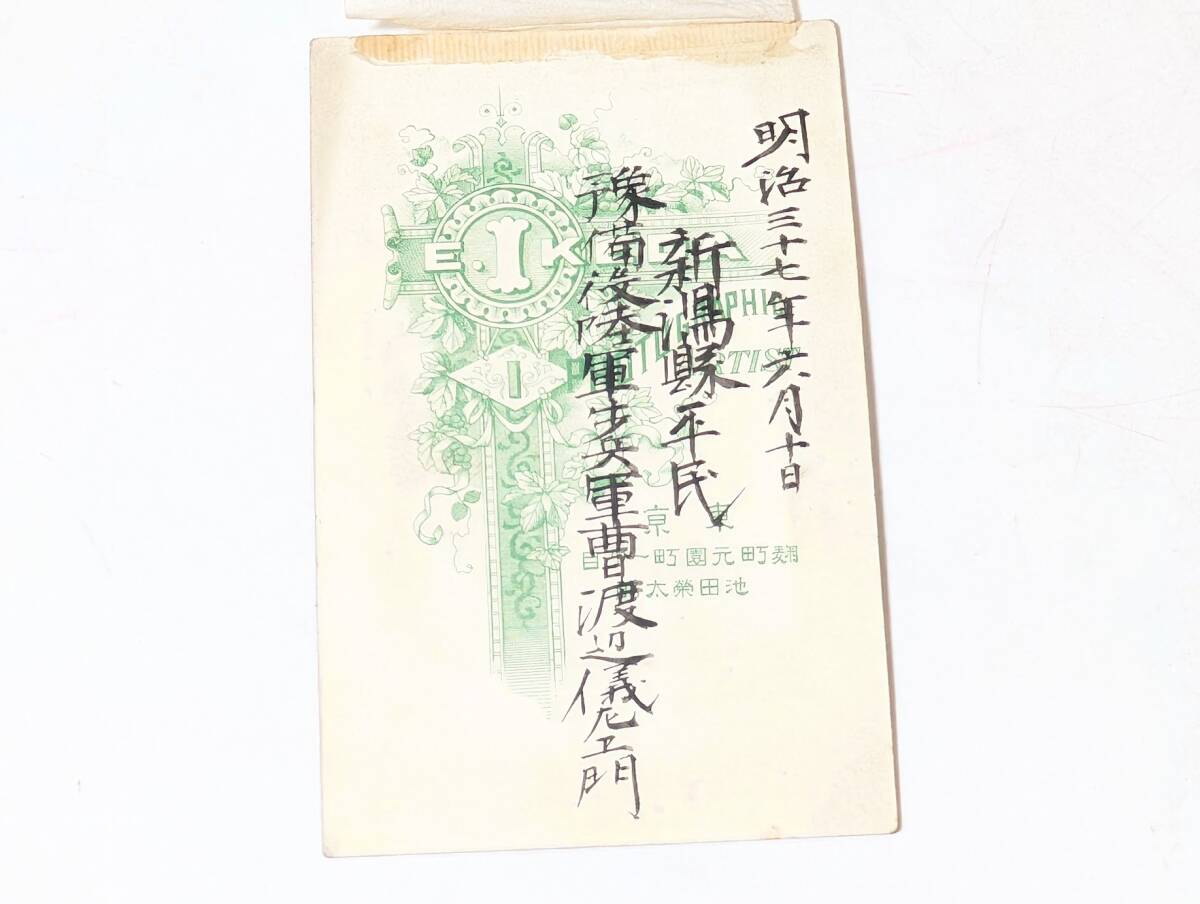 明治三十七年六月十日
新潟縣平民
豫備後陸軍步兵軍曹渡辺儀左エ門
E.
I
PHOTOGRAPHIC
ARTIST
I
東京
麹町元園町一
池田榮太